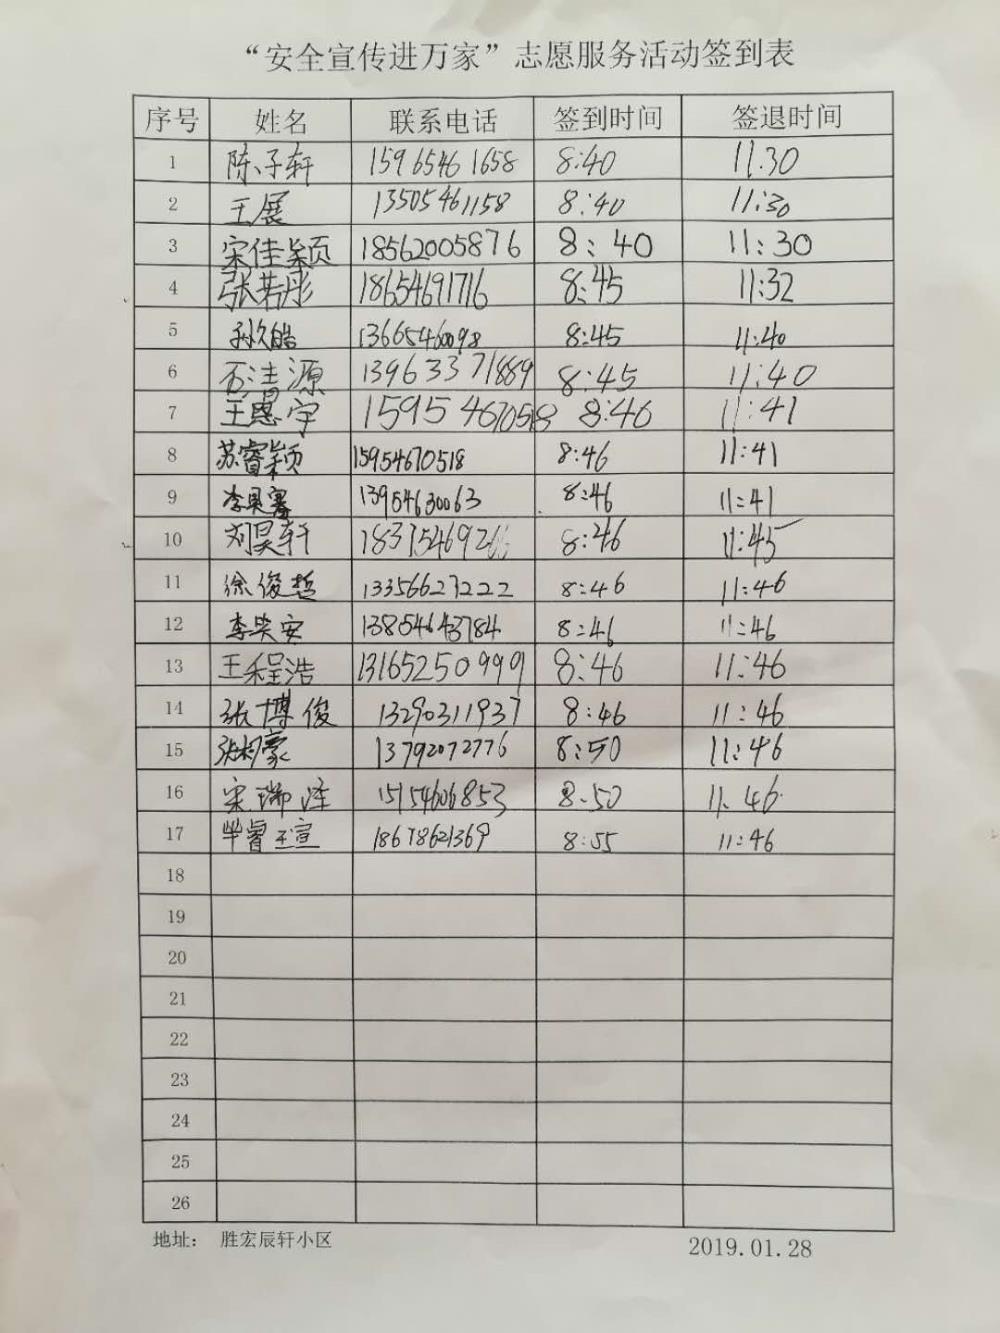 “安全宣传进万家”志愿服务活动签到表
序号 姓名 联系电话 签到时间 签退时间
1 陈子轩 15965461658 8:40 11.30
2 王展 13505461158 8:40 11:30
3 宋佳颖 18562005876 8:40 11:30
4 张若彤 18654691716 8:45 11:32
5 孙久皓 13665460098 8:45 11:40
6 石清源 13963371889 8:45 11:40
7 王恩宇 15954670518 8:46 11:41
8 苏睿颖 15954670518 8:46 11:41
9 李贝骞 13954630063 8:46 11:41
10 刘昊轩 8:46 11:45
11 徐俊哲 13356627222 8:46 11:46
12 李奕安 13854643784 8:46 11:46
13 王程浩 13165250999 8:46 11:46
14 张博俊 13290311937 8:46 11:46
15 13792072776 8:50 11:46
16 宋瑞泽 15154606853 8.50 11.46
17 毕睿玉宣 18678621369 8:55 11:46
18
19
20
21
22
23
24
25
26
地址： 胜宏辰轩小区 2019.01.28